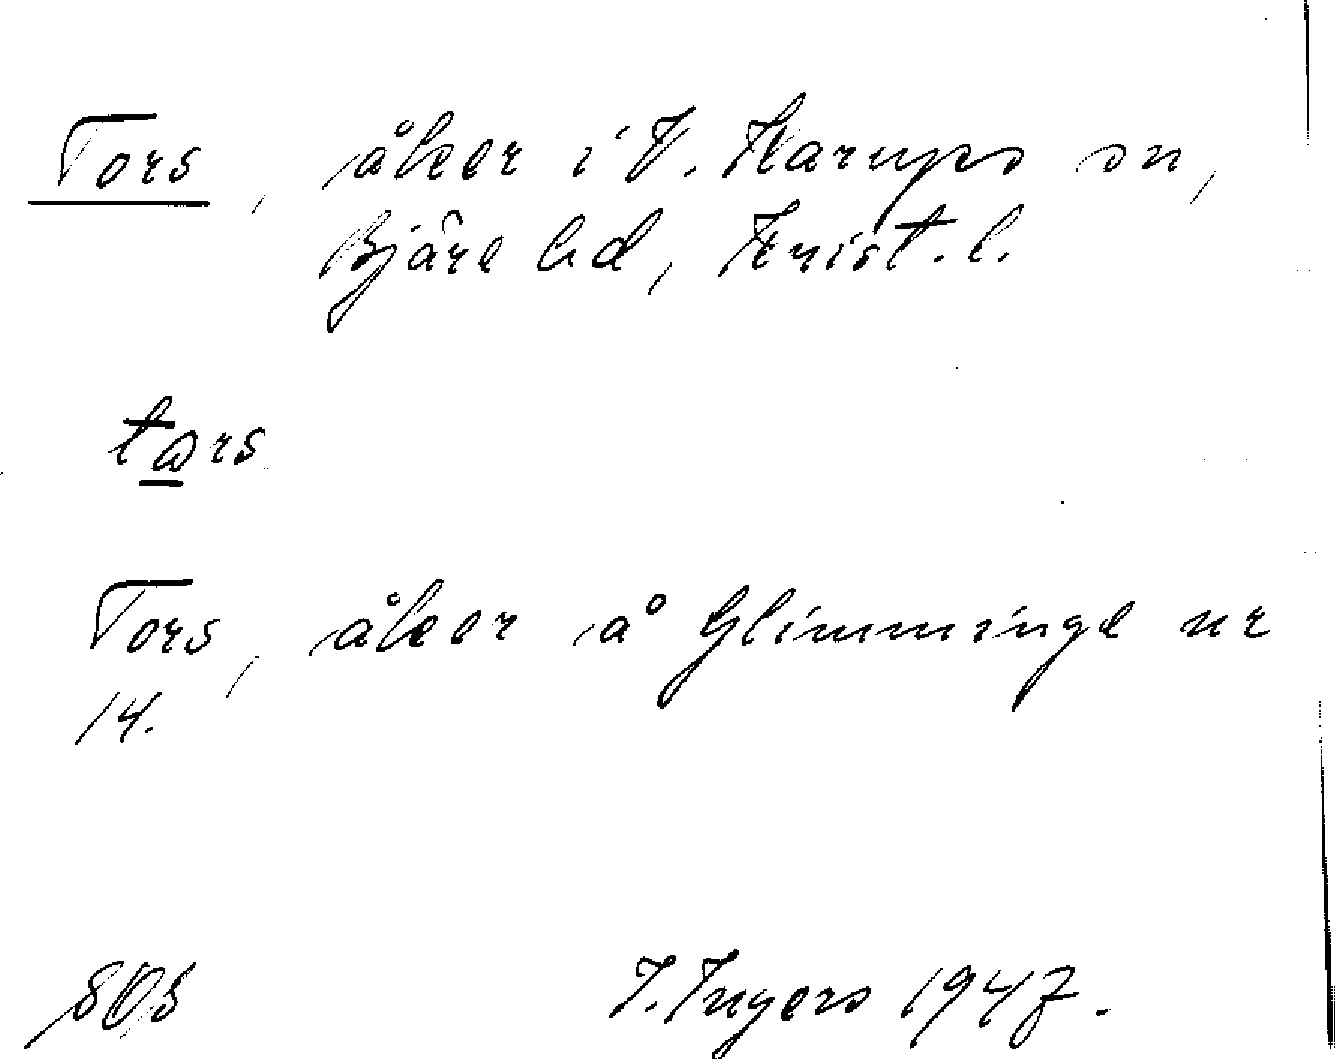 Tors, åker i V. Karups sn,
Bjäre hd, Krist. l.
tωrs
Tors, åker å Glimminge nr
14.
I. Ingers 1947.